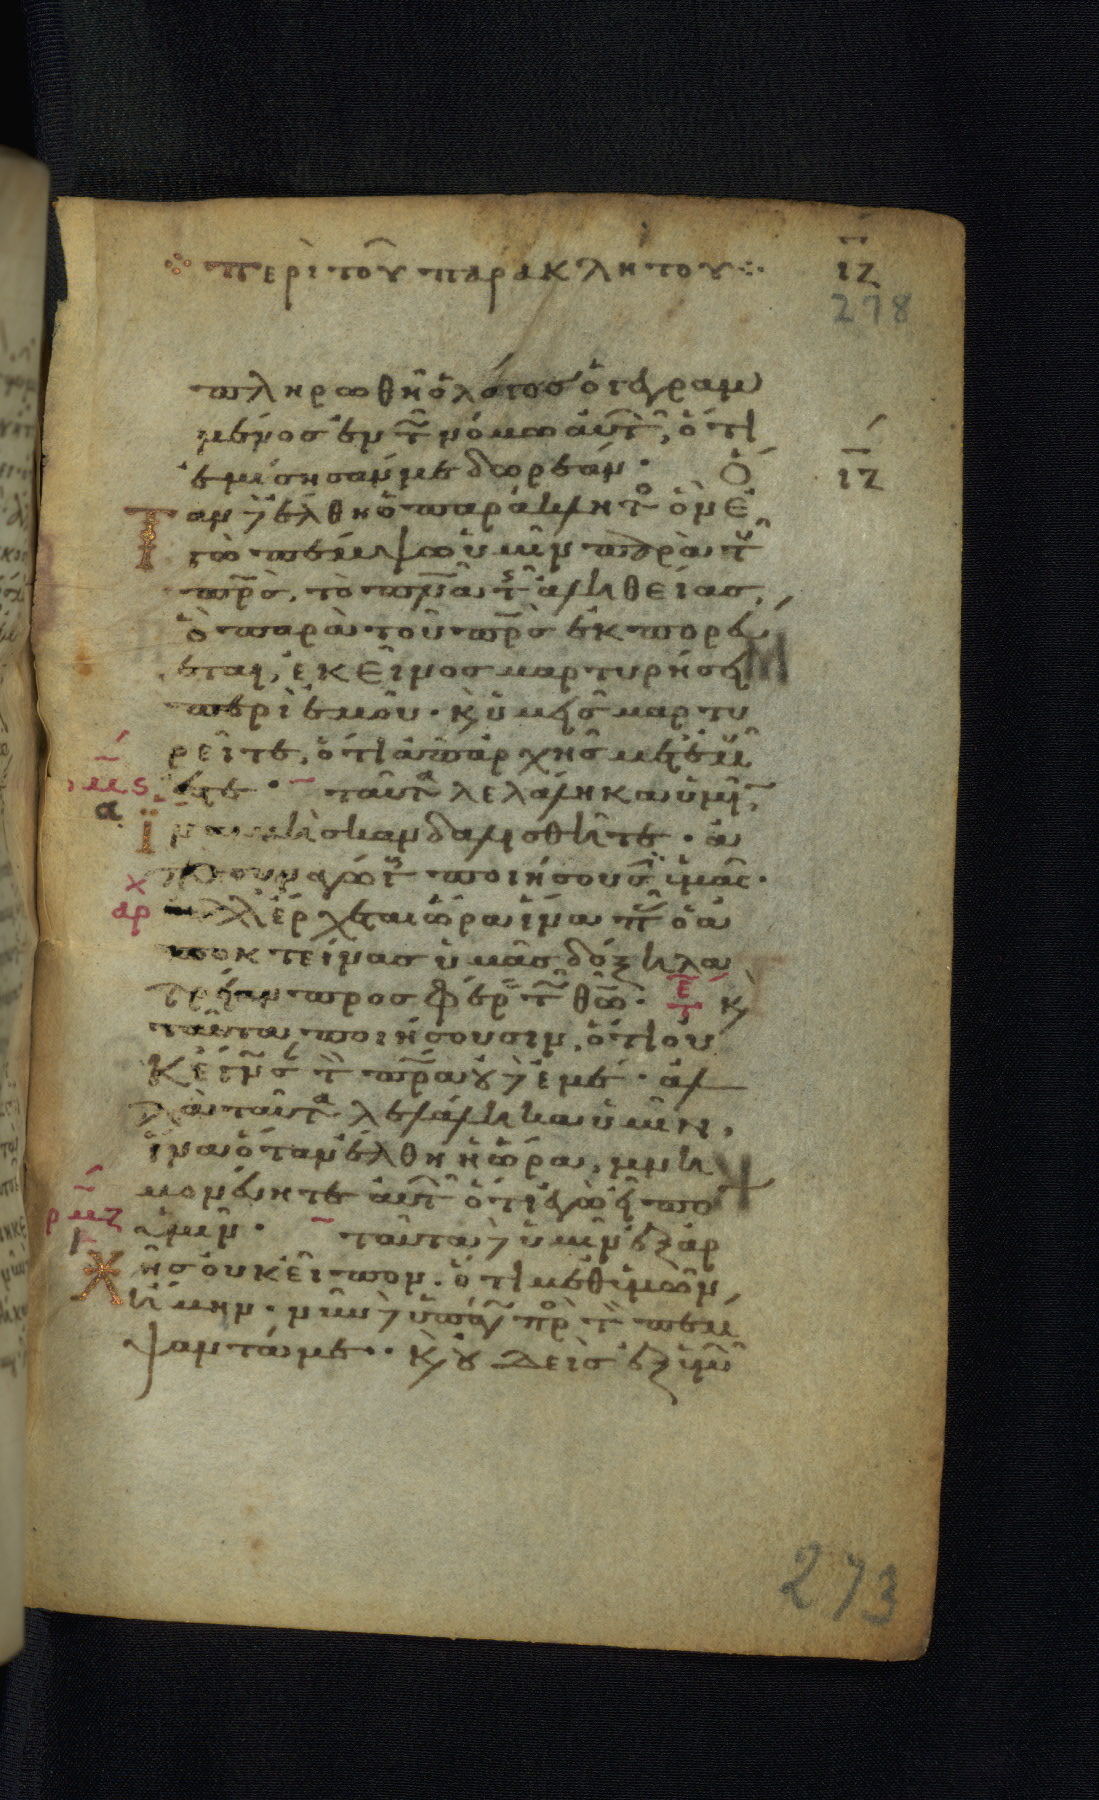 περὶ τοῦ παρακλήτου ιζ
278
πληρωθῆ ὁ λόγος ὁ γεγραμ
μένος ἐν τῶ νόμω αὐτῶν, ὅτι
ἐμίσησάν με δωρεάν· Ὅ ιζ
ταν δὲ ἔλθη ὁ παράκλητος ὃν ἐ
γὼ πέμψω ὑμῖν παρὰ τοῦ
πρς, τὸ πνα τῆς ἀληθείας,
ὃ παρὰ τοῦ πρς ἐκπορεύ
εται, ἐκεῖνος μαρτυρήσει
περὶ ἐμοῦ· καὶ ὑμεῖς μαρτυ
ρεῖτε, ὅτι ἀπ' ἀρχῆς μετ' ἐμοῦ
ρμς ἐστε· ταῦτα λελάληκα ὑμῖν,
α ἵνα μὴ σκανδαλισθῆτε· ἀ
ποσυναγώγους ποιήσουσιν ὑμᾶς·
αρχ ἀλλ' ἔρχεται ὥρα ἵνα πᾶς ὁ ἀ
ποκτείνας ὑμᾶς δόξη λα
τρείαν προσφέρειν τῶ θῶ· τε καὶ
ταῦτα ποιήσουσιν, ὅτι οὐ
κ ἔγνωσαν τὸν πρα οὐδὲ ἐμέ· ἀλ
λὰ ταῦτα λελάληκα ὑμῖν,
ἵνα ὅταν ἔλθη ἡ ὥρα, μνη
μονεύητε αὐτῶν ὅτι ἐγὼ εἶπον
ρμζ ὑμῖν· ταῦτα δὲ ὑμῖν ἐξ ἀρ
χῆς οὐκ εἶπον, ὅτι μεθ' ὑμῶν
ἤμην· νῦν δὲ ὑπάγω πρὸς τὸν πέμ
ψαντά με· καὶ οὐδεὶς ἐξ ὑμῶν
273